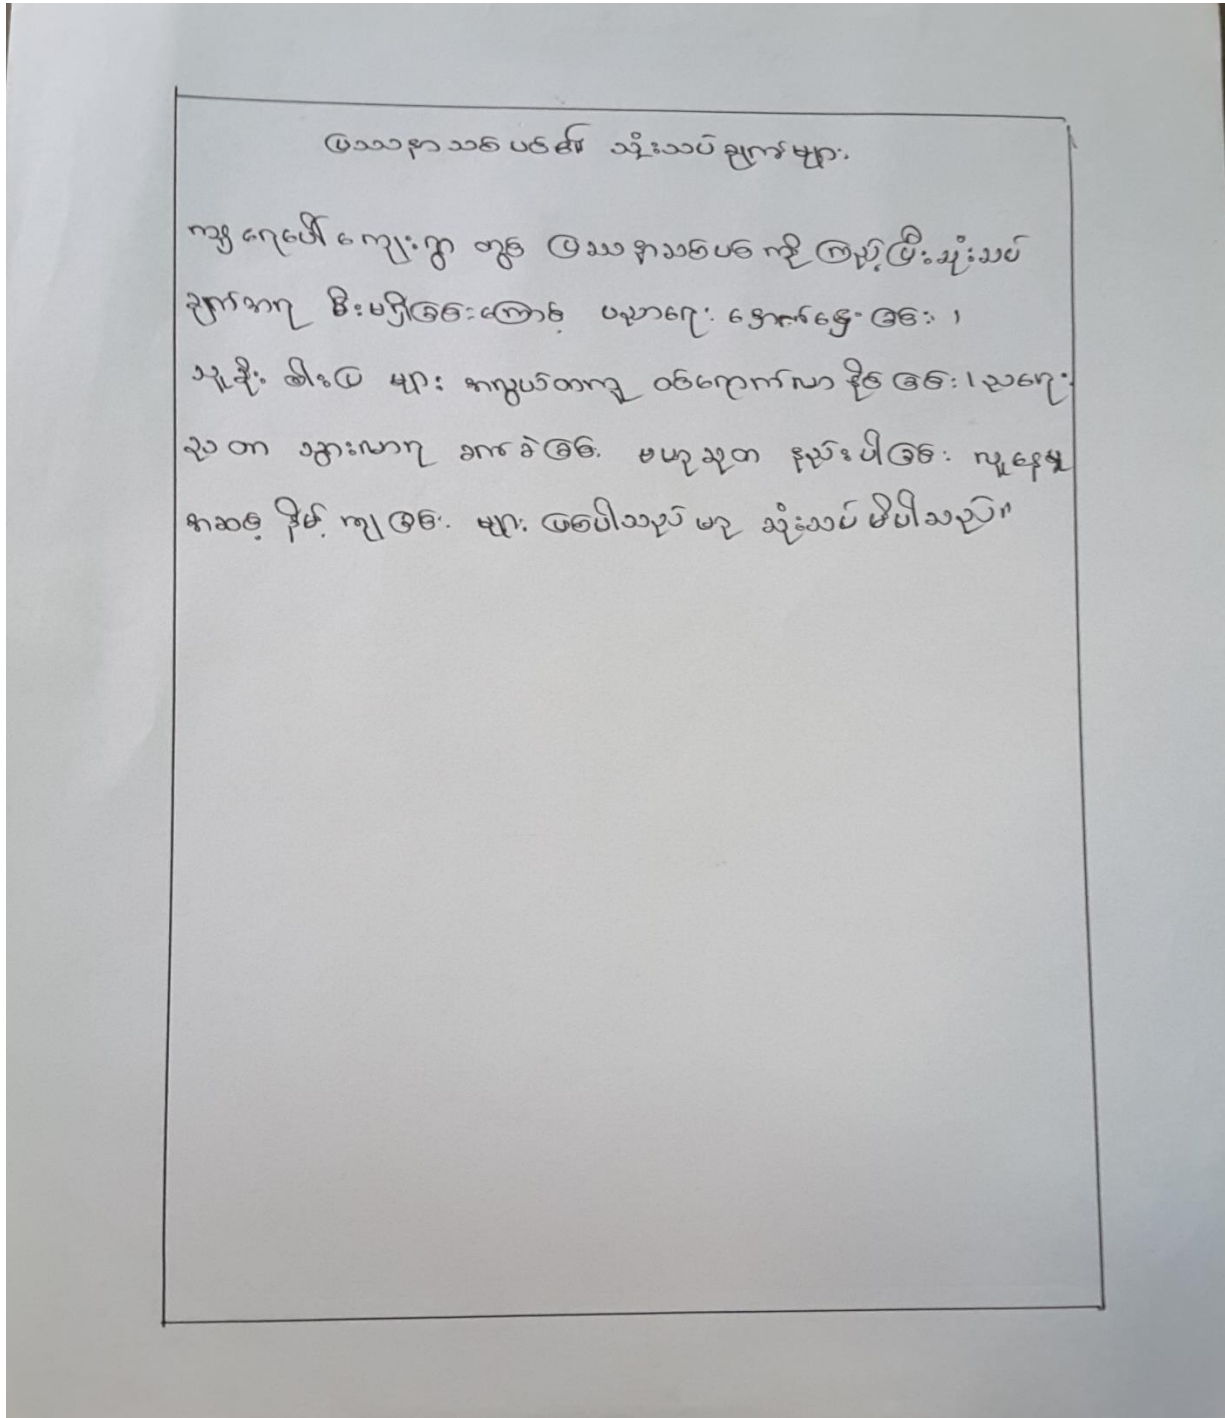 ပြဿနာသစ်ပင်၏ သုံးသပ်ချက်များ
ကျရေပေါ်ကျေးရွာ တွင် ပြဿနာသစ်ပင် ကို ကြည့်ပြီးသုံးသပ်
ချက်အရ မီးမရှိခြင်းကြောင့် ပညာရေး နှောင့်နှေးခြင်း ၊
သူခိုး ဓါးပြ များ အလွယ်တကူ ဝင်ရောက်လာနိုင်ခြင်း ၊ ညရေး
ညတာ သွားလာရ ခက်ခဲခြင်း ဗဟုသုတ နည်းပါးခြင်း လူနေမှု
အဆင့် နိမ့် ကျခြင်း များ ဖြစ်ပါသည် ဟု သုံးသပ် မိပါသည်။